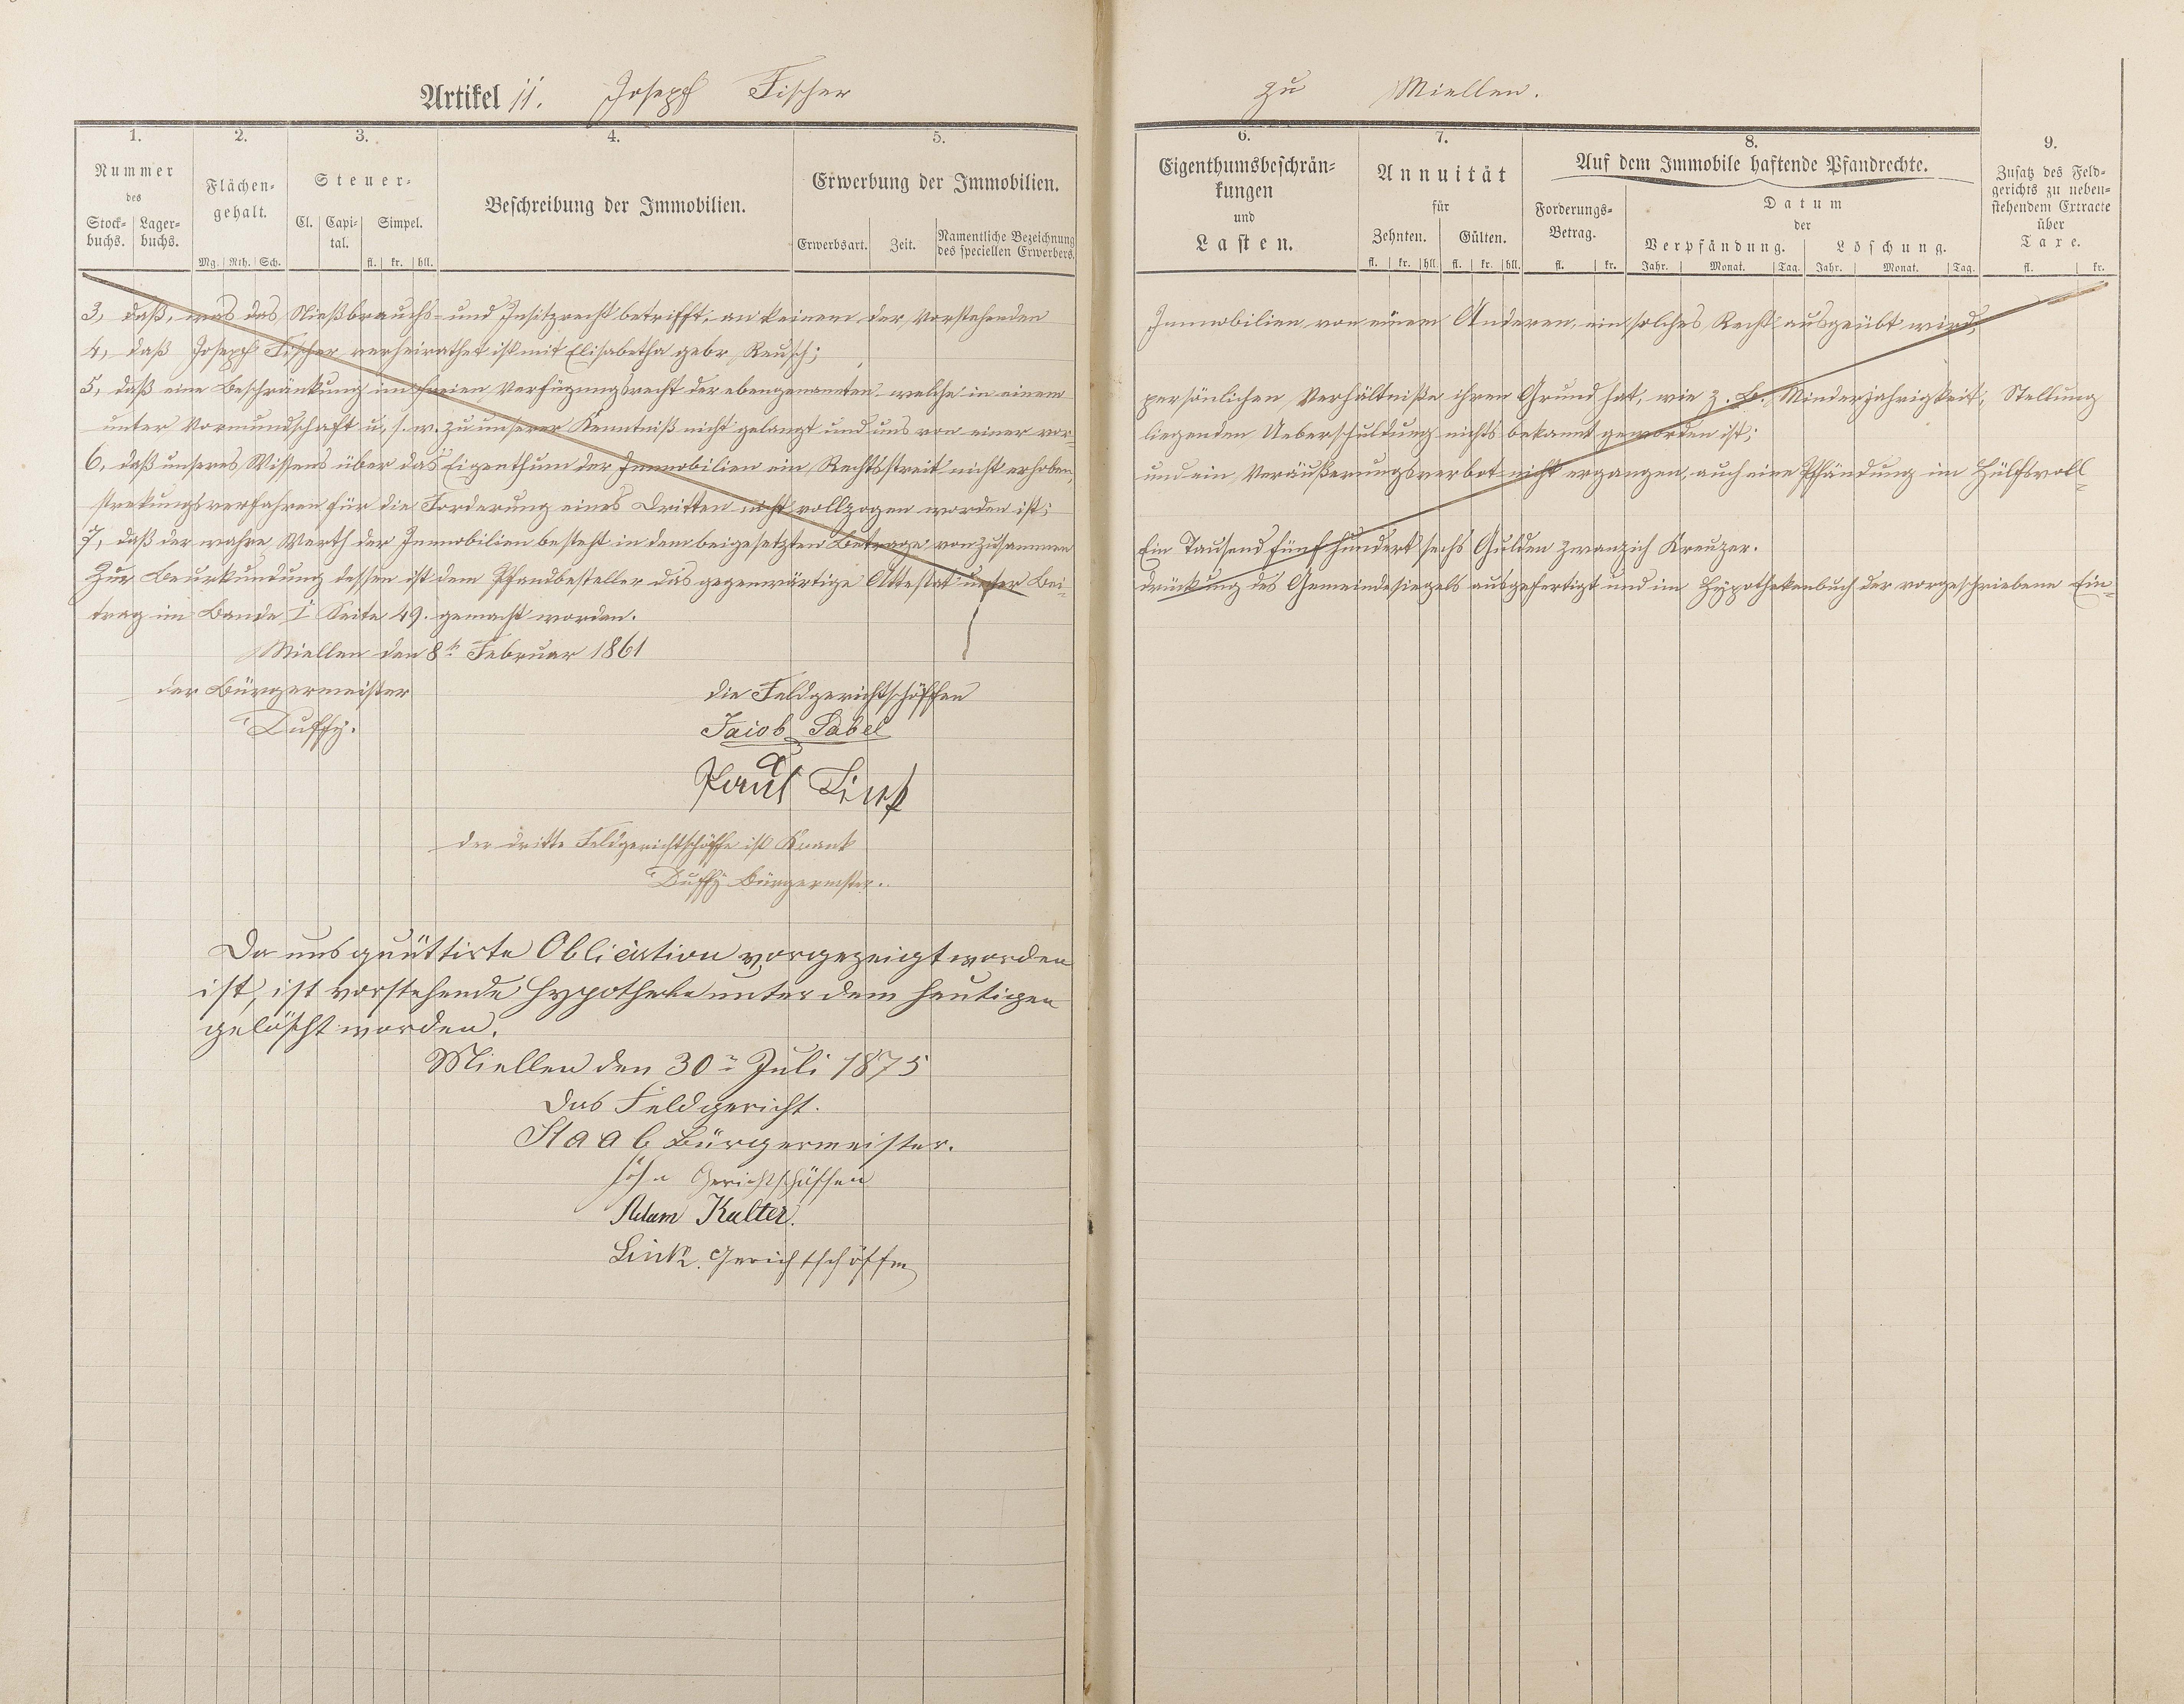 Artikel 11. Joseph Fischer zu Miellen.
1. 2. 3. 4. 5. 6. 7. 8. 9.
Nummer des
Stock-buchs. Lager-buchs.
Flächen-gehalt.
Mg. Rth. Sch.
Steuer-
Cl. Capi-tal. Simpel.
fl. kr. hll.
Beschreibung der Immobilien.
Erwerbung der Immobilien.
Erwerbsart. Zeit. Namentliche Bezeichnung des speciellen Erwerbers.
Eigenthumsbeschrän-
kungen
und
Lasten.
Annuität
für
Zehnten. Gülten.
fl. kr. hll. fl. kr. hll.
Auf dem Immobile haftende Pfandrechte.
Forderungs-
Betrag.
fl. kr.
Datum
der
Verpfändung. Löschung.
Jahr. Monat. Tag. Jahr. Monat. Tag.
Zusatz des Feld-
gerichts zu neben-
stehendem Extracte
über
Taxe.
fl. kr.
3, daß, was das Nießbrauchs- und Insitzrecht betrifft, an keinem der vorstehenden Immobilien von einem Anderen, ein solches Recht ausgeübt wird;
4, daß Joseph Fischer verheirathet ist mit Elisabetha gebr. Reusch;
5, daß eine Beschränkung im freien Verfügungsrecht der ebengenannten welche in einem persönlichen Verhältniße ihren Grund hat, wie z. B. Minderjahrigkeit, Stellung
unter Vormundschaft u. s. w. zu unserer Kenntniß nicht gelangt und uns von einer vor-liegenden Ueberschuldung nichts bekannt geworden ist;
6, daß unseres Wissens über das Eigenthum der Immobilien ein Rechtsstreit nicht erhoben, und ein Veräußerungsverbot nicht ergangen, auch eine Pfändung im Hülfsvoll-
strekungsverfahren für die Forderung eines Dritten nicht vollzogen worden ist;
7, daß der wahre Werth der Immobilien besteht in dem beigesetzten Betrage von zusammen Ein Tausend fünf hundert sechs Gulden zwanzich Kreuzer.
Zur Beurkundung dessen ist dem Pfandbesteller das gegenwärtige Attestat unter Bei-drückung des Gemeindesiegels ausgefertigt und im Hypothekenbuch der vorgeschriebene Ein-
trag im Bande I Seite 49. gemacht worden.
Miellen den 8t. Februar 1861
der Bürgermeister die Feldgerichtschöffen
Duffy. Jaiob Sabel
Paul Link
der dritte Feldgerichtschöffe ist Krank
Duffy Bürgermster.
Da uns quittirte ObliCation vorgezeigt worden
ist, ist vorstehende Hypotheke unter dem heutigen
gelöscht worden.
Miellen den 30n Juli 1875
Das Feldgericht.
Staab Bürgermeister.
Höhn Gerichtschöffen
Adam Kalter.
Link. Gerichtschöffen